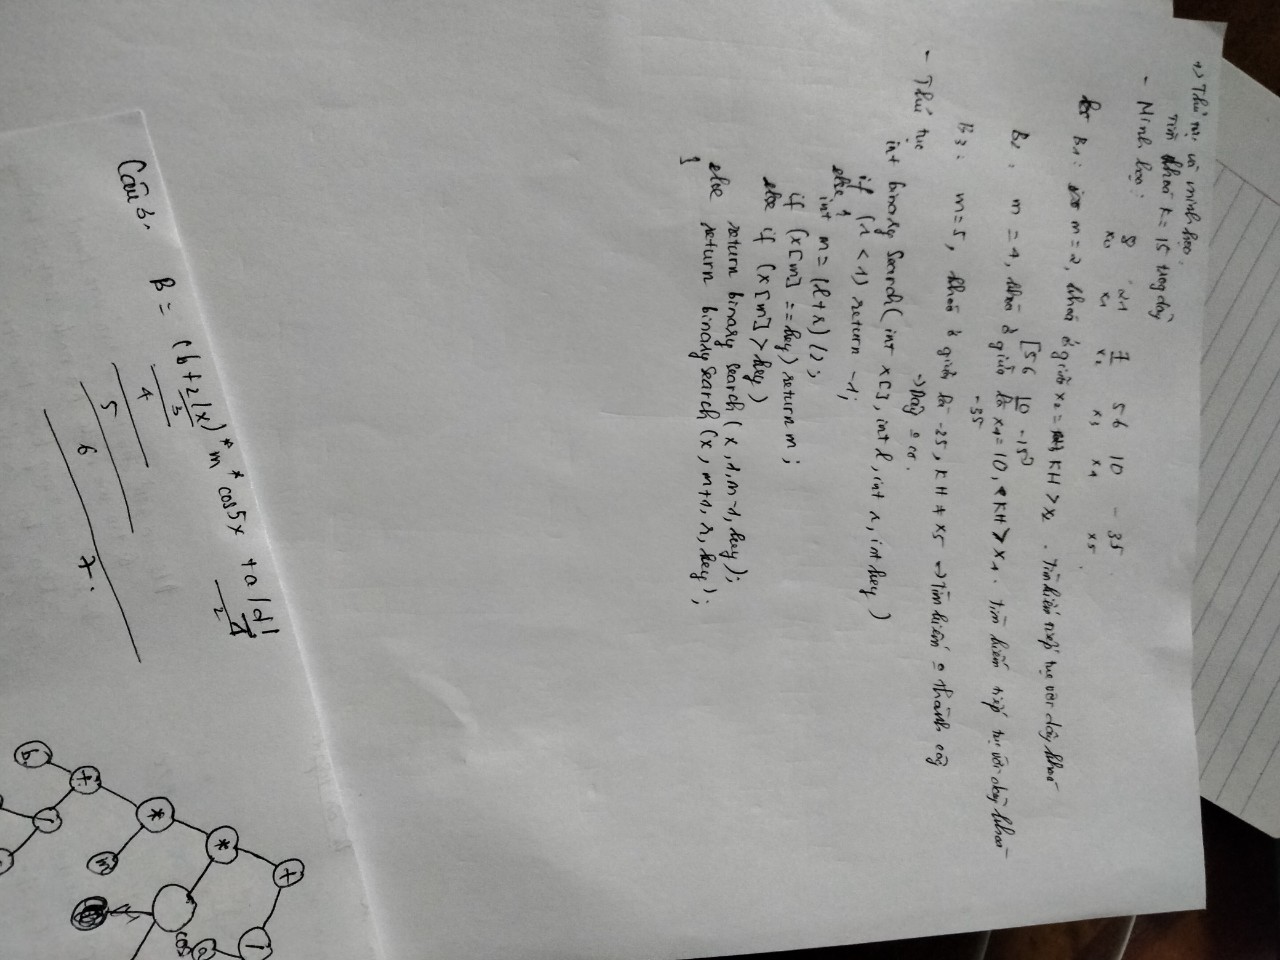 1) Thủ tục và minh họa
tìm khoá K = 15 trong dãy
- Minh hoạ: 8 21 7 56 10 -35
x0 x1 x2 x3 x4 x5
B1: m = 2, khoá ở giữa x2 = KH > x2. Tìm kiếm tiếp tục với dãy khoá
[56 10
B2: m = 4, khoá ở giữa là x4 = 10, KH > x4. Tìm kiếm tiếp tục với dãy khoá
-35
B3: m = 5, khoá ở giữa là -25, KH ≠ x5 → Tìm kiếm thành công
→ Dãy
- Thủ tục
int binary Search( int x[], int l, int r, int key )
if (r < 1) return -1;
else {
int m = (l+r) / 2;
if (x[m] == key) return m;
else if (x[m] > key)
return binary search ( x, 1, m-1, key );
else return binary search ( x, m+1, r, key );
}
Câu 3. B = (b+2/x) * m * cos5x + a/d!
3 1
4 2
5
6
7.
+
* /
* a
+ m cos
b /